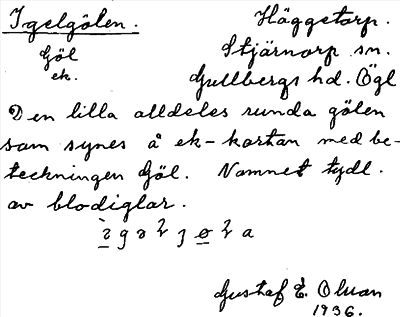 Igelgölen. Häggetorp.
Göl Stjärnorp sn.
ek. Gullbergs hd. Ögl
Den lilla alldeles runda gölen
som synes å ek-kartan med be-
teckningen Göl. Namnet tydl.
av blodiglar.
Gustaf E. Olsson
1936.